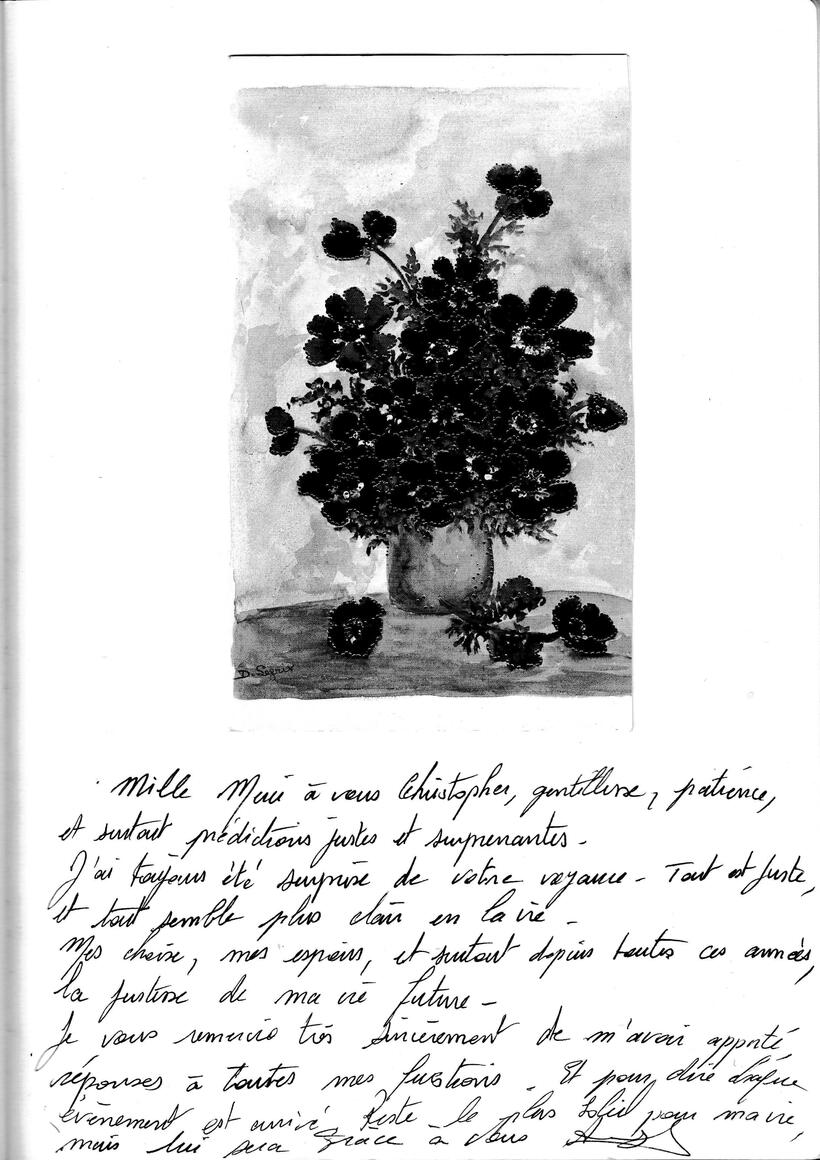 D. Segur
Mille Merci à vous Christopher, gentillesse, patience,
et surtout prédictions justes et surprenantes.
J'ai toujours été surprise de votre voyance. Tout est juste,
et tout semble plus clair en la vie.
Mes choix, mes espoirs, et surtout depuis toutes ces années,
la justesse de ma vie future.
Je vous remercie très sincèrement de m'avoir apporté
réponses à toutes mes questions. Et pour dire chaque
évènement est arrivé. Reste le plus pour ma vie,
mais lui sera Grâce à vous